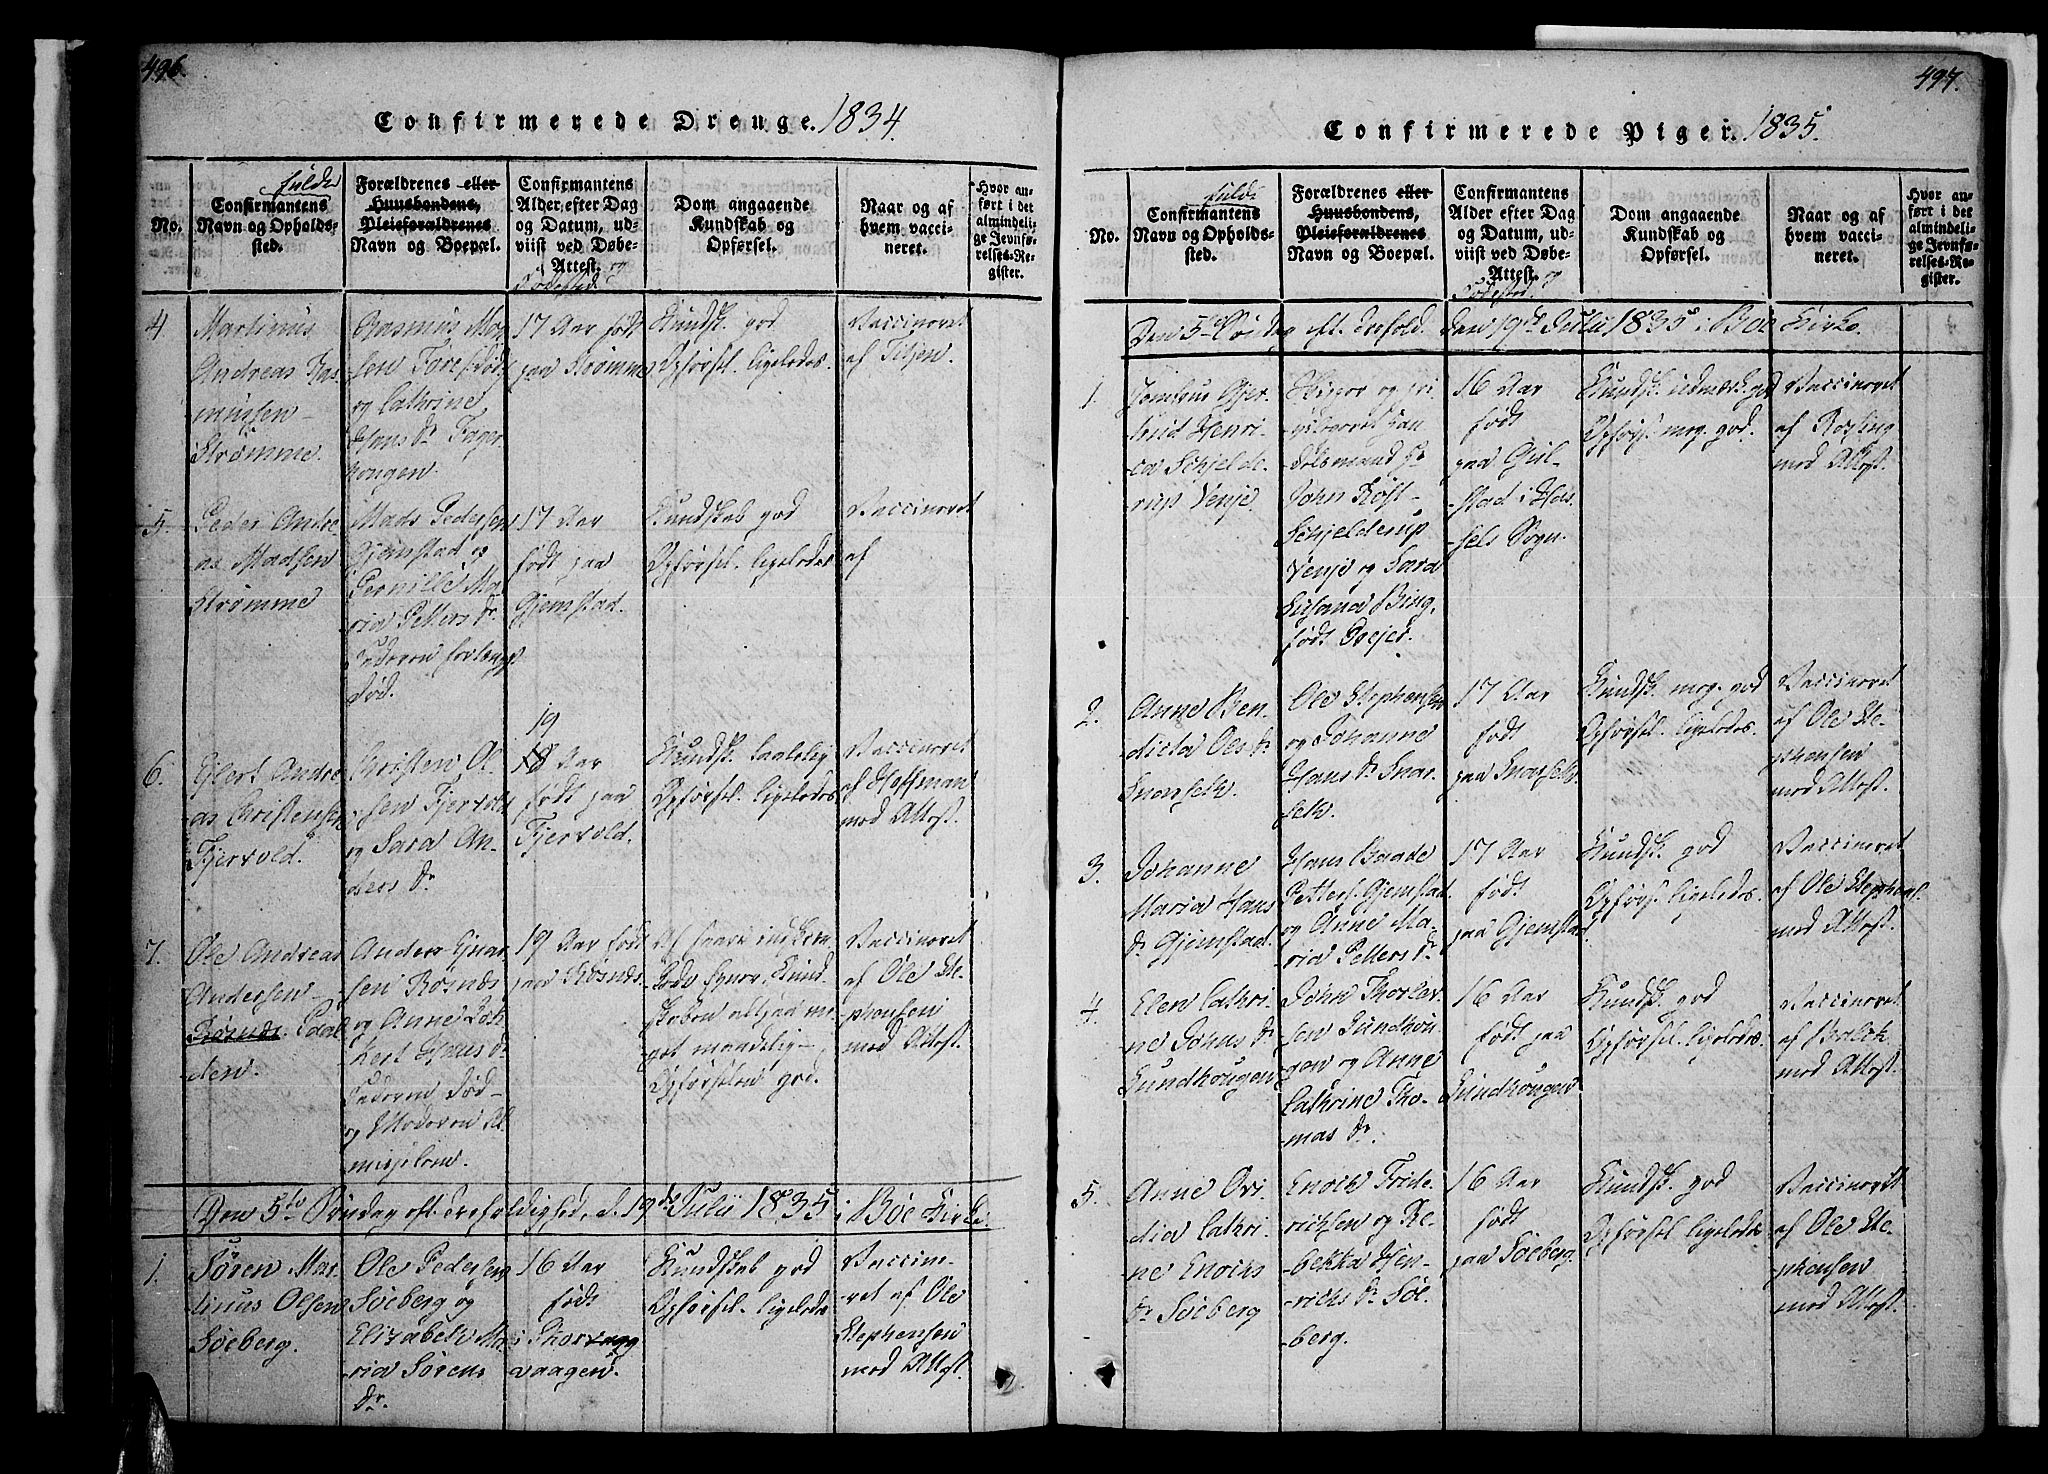 496.
Confirmerede Drenge. 1834.
No.
fulde
Confirmantens
Navn og Opholds-
sted.
Forældrenes eller
Huusbondens,
Pleieforældrenes
Navn og Boepæl.
Confirmantens
Alder efter Dag
og Datum, ud-
viist ved Døbe-
Attest. og
Fødested.
Dom angaaende
Kundskab og
Opførsel.
Naar og af
hvem vacci-
neret.
Hvor an-
ført i det
almindeli-
ge Jevnfø-
relses-Re-
gister.
4.
Martinus
Andreas Ras-
mussen
Strømme.
Rasmus Mo-
sen Fore
og Cathrine
Hans Dr. Fager-
hougen.
17 Aar født
paa Strømme
Kundsk. god
Opførsel. ligeledes.
Vaccineret
af
5.
Peder Andre-
as Madsen
Strømme
Mads Pedersen
Gjemstad og
Pernille Ma-
ria Petters Dr.
Faderen forlængst
død.
17 Aar
født paa
Gjemstad.
Kundskab god
Opførsel. ligeledes
Vaccineret
af
6.
Ejlert Andre-
as Christensen
Fjervold.
Christen Ol-
sen Fjervold
og Sara An-
ders Dr.
19
18 Aar
født paa
Fjervold.
Kundsk. taalelig
Opførsel. ligeledes
Vaccineret
af Hoffman
med Attest.
7.
Ole Andreas
Andersen
Røsnes.
den.
Anders Ejnar-
sen Røsnes
og Anne
Hans Dr.
Faderen død
og Moderen Al-
misselem.
19 Aar født
paa Røsnes.
Af
Kund-
skaben
get maadelig
Opførselen god.
Vaccineret
af Ole Ste-
phensen
med Attest.
Den 5te Søndag eft. Trefoldighed, d. 19de Julii 1835 i Bøe Kirke.
1.
Søren Mar-
tinus Olsen
Søeberg.
Ole Pedersen
Søeberg og
Elisabeth Ma-
ria Sørens
Dr.
16 Aar
født
i Thorvagg
vaagen.
Kundskab god
Opførsel. ligeledes
Vaccine-
ret af Ole
Stephensen
med Attest.
497.
Confirmerede Piger. 1835.
No.
fulde
Confirmantens
Navn og Opholds-
sted.
Forældrenes eller
Huusbondens,
Pleieforældrenes
Navn og Boepæl.
Confirmantens
Alder efter Dag
og Datum, ud-
viist ved Døbe-
Attest. og
Fødested.
Dom angaaende
Kundskab og
Opførsel.
Naar og af
hvem vacci-
neret.
Hvor an-
ført i det
almindeli-
ge Jevnfø-
relses-Re-
gister.
Den 5te Søndag eft. Trefold. den 19de Julii 1835 i Böe Kirke.
1.
Jomfrue Gjer-
trud Henri-
ca Schjelde-
rup Venje.
og pri-
viligeret Han-
delsmand Hr
John Röst
Schjelderup
Venje og Sara
Susana Bing,
født Preyer.
16 Aar
født
paa Gul-
stad i Has-
sels Sogn.
Kundsk. udmærk. god
Opførs. meg. god.
Vaccineret
af Rosting
med Attest.
2.
Anne Ben-
dicta Ols Dr
Snarseth.
Ole Stephensen
og Johanne
Hans Dr. Snar-
seth.
17 Aar
født
paa Snarseth.
Kundsk. meg. god
Opførsl. ligeledes.
Vaccineret
af Ole Ste-
phensen
med Attest.
3.
Johanne
Maria Hans
Dr Gjemstad.
Hans Baade
Petters. Gjemstad
og Anne Ma-
ria Petters Dr.
17 Aar
født
paa Gjemstad.
Kundsk. god
Opførsl. ligeledes.
Vaccineret
af Ole Stephens.
med Attest.
4.
Elen Cathri-
ne Johns Dr
Sundhougen
John Thorler-
sen Sundhou-
gen og Anne
Cathrine Tho-
mas Dr.
16 Aar
født paa
Sundhougen
Kundsk. god
Opførsel. ligeledes.
Vaccineret
af Balch
med Attest.
5.
Anne Ovi-
dia Cathri-
ne Enochs
Dr Søeberg
Enoch Fride-
richsen og Re-
bekka Hen-
richs Dr. Søe-
berg.
16 Aar
født
paa Søeberg.
Kundsk. god
Opførsel ligeledes
Vaccineret
af Ole Ste-
phensen
med Attest.